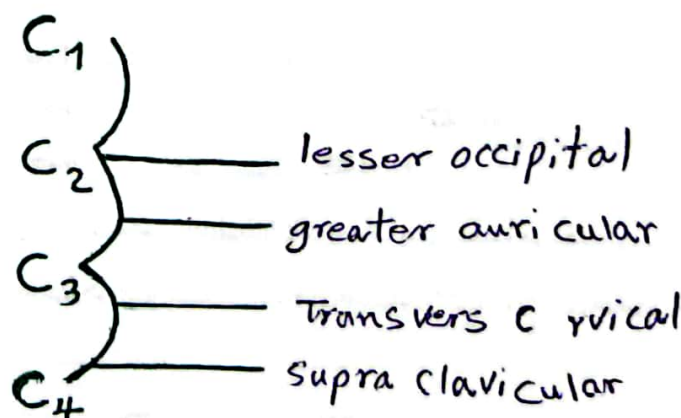 C1
C2 lesser occipital
greater auricular
C3
Transvers C rvical
C4 supra clavicular